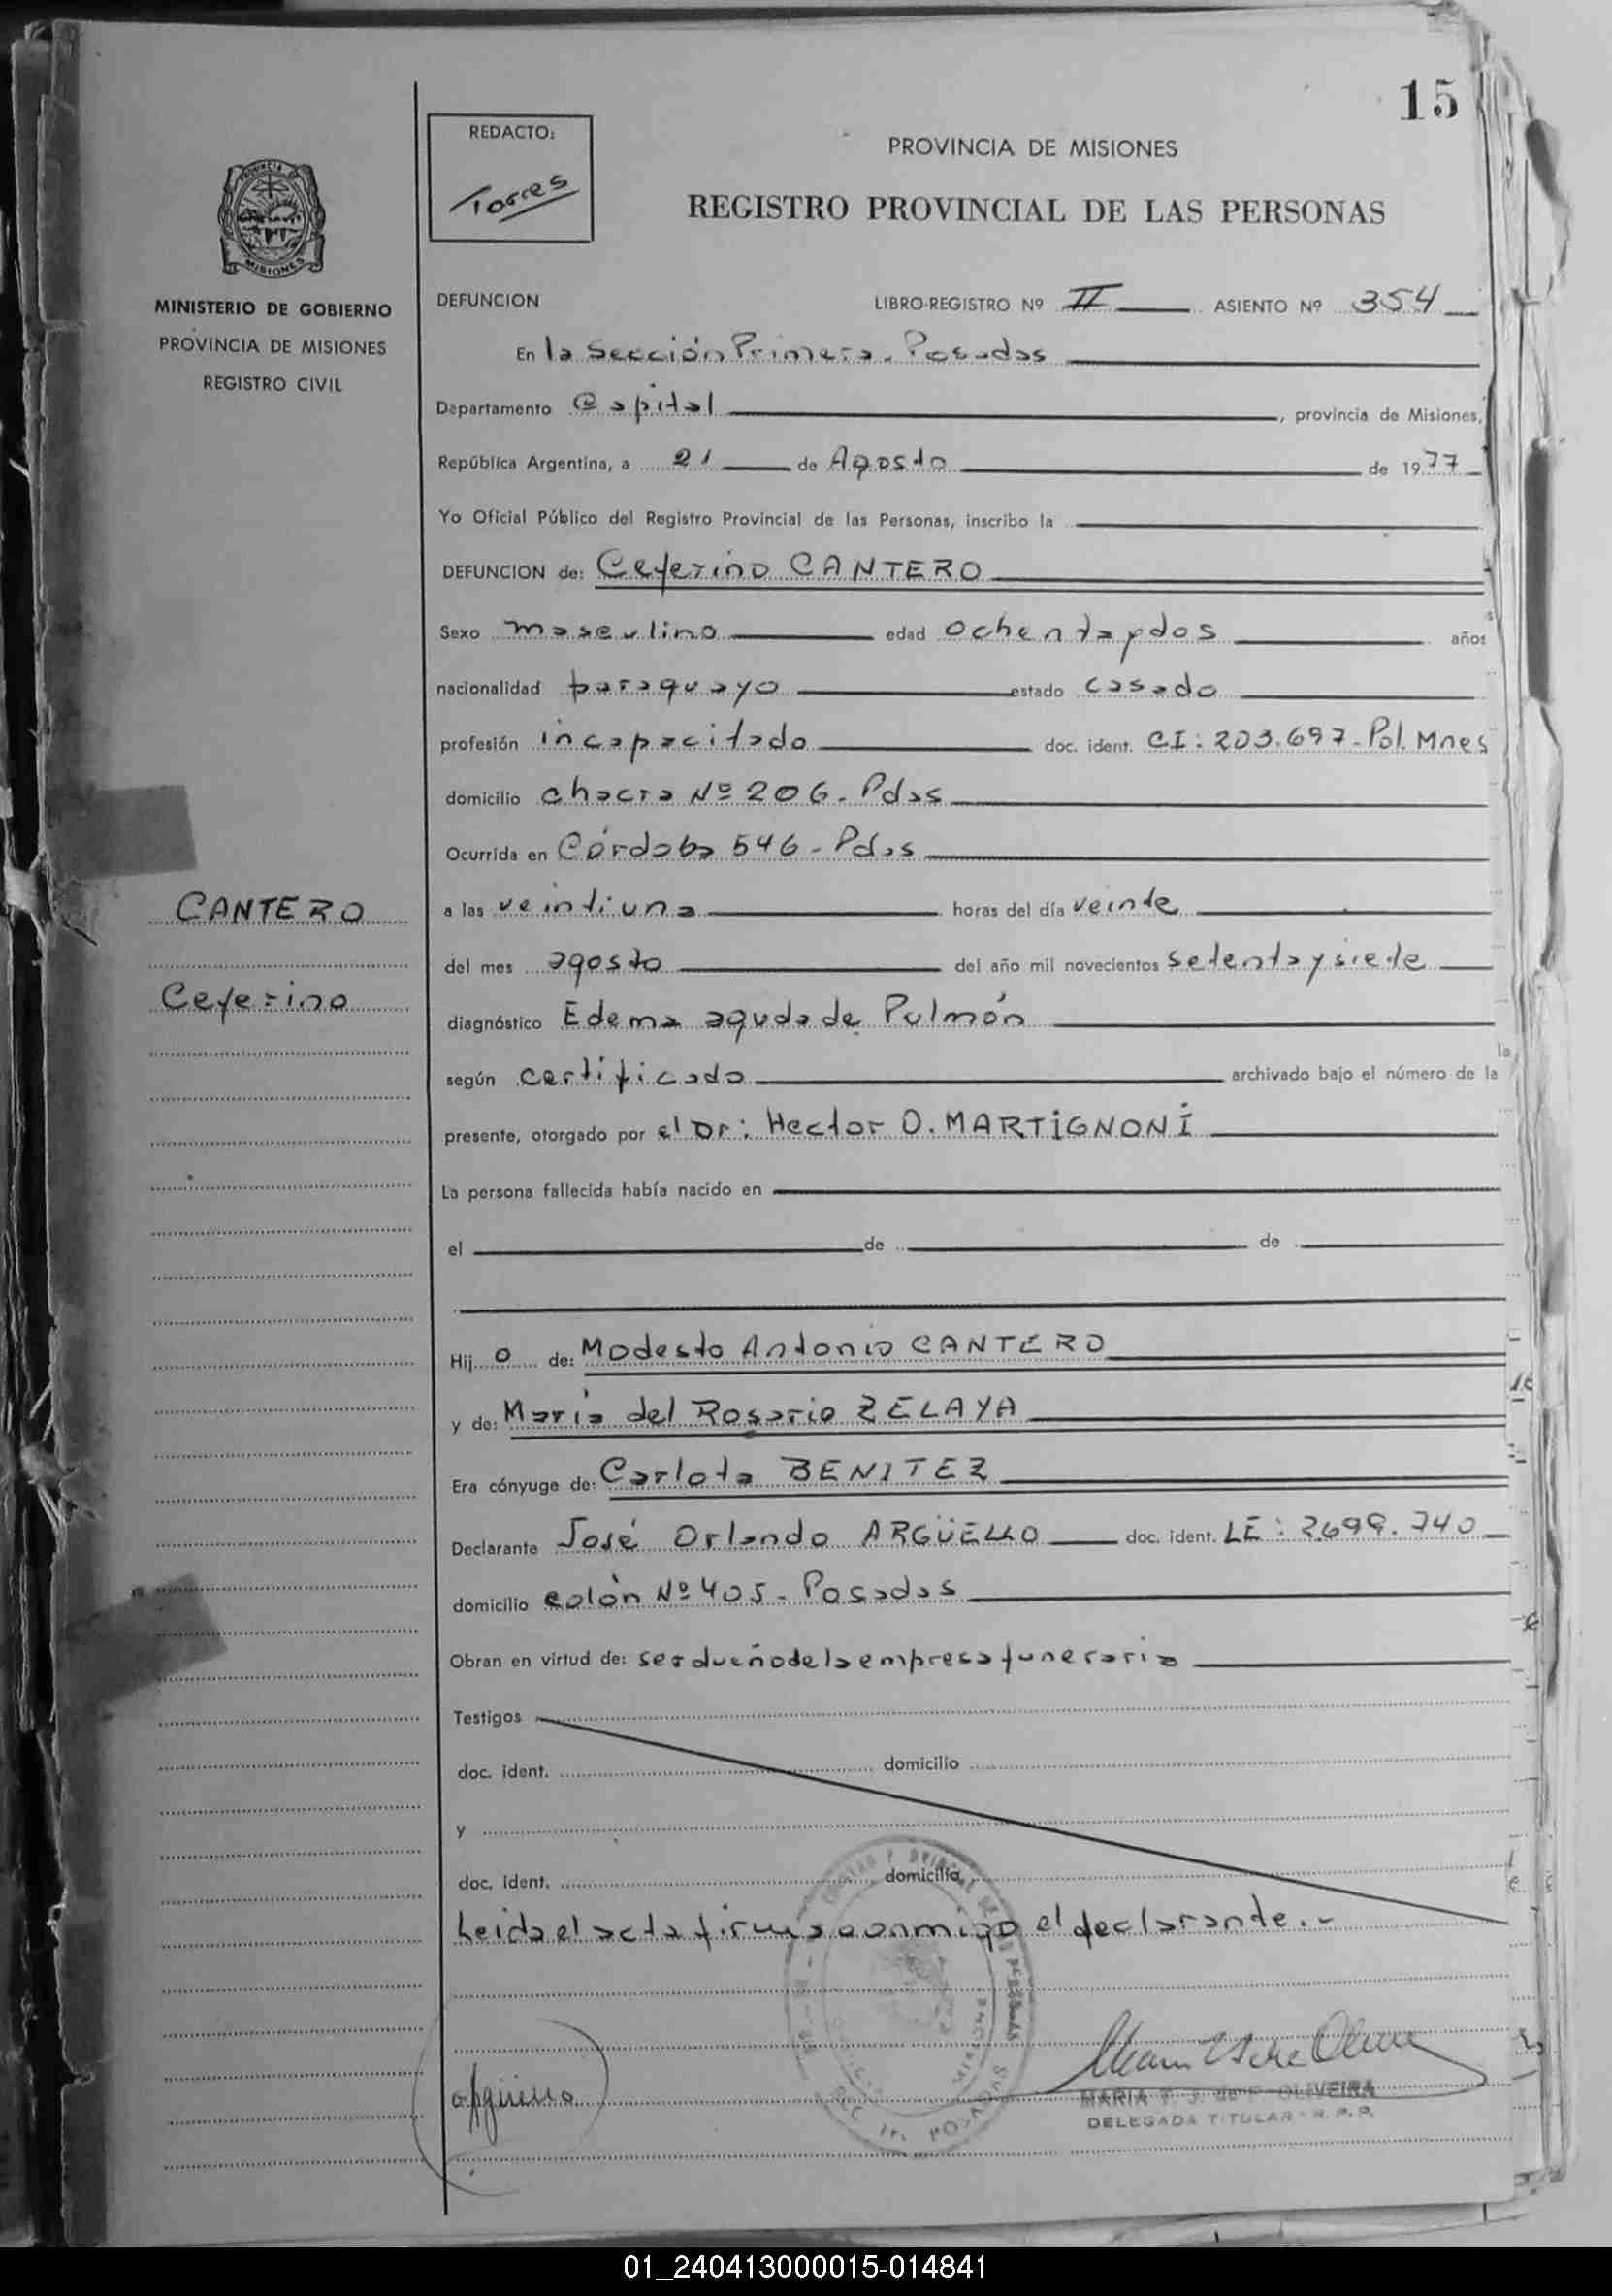 15
REDACTO:
Torres
PROVINCIA DE MISIONES
REGISTRO PROVINCIAL DE LAS PERSONAS
MISIONES
MINISTERIO DE GOBIERNO
PROVINCIA DE MISIONES
REGISTRO CIVIL
DEFUNCION LIBRO-REGISTRO Nº II ASIENTO Nº 354
En la Sección Primera. Posadas
Departamento Capital, provincia de Misiones,
República Argentina, a 21 de Agosto de 1977
Yo Oficial Público del Registro Provincial de las Personas, inscribo la
DEFUNCION de: Ceferino CANTERO
Sexo masculino edad ochenta y dos años
nacionalidad paraguayo estado casado
profesión incapacitado doc. ident. CI: 203.697-Pol. Mnes
domicilio chacra Nº 206. Pdas
Ocurrida en Córdoba 546 - Pdas
CANTERO
a las veintiuna horas del día veinte
del mes agosto del año mil novecientos setenta y siete
Ceferino
diagnóstico Edema aguda de Pulmón
según certificado archivado bajo el número de la
presente, otorgado por el Dr: Hector O. MARTIGNONI
La persona fallecida había nacido en
el de de
Hij o de: Modesto Antonio CANTERO
y de: María del Rosario ZELAYA
Era cónyuge de: Carlota BENITEZ
Declarante José Orlando ARGÜELLO doc. ident. LE: 2699.740
domicilio colón Nº 405 - Posadas
Obran en virtud de: ser dueño de la empresa funeraria
Testigos
doc. ident. domicilio
y
doc. ident. domicilio
Leida el acta firma conmigo el declarante.-
Argüello
MARIA T. J. de P. OLIVEIRA
DELEGADA TITULAR - R.P.P.
01_240413000015-014841